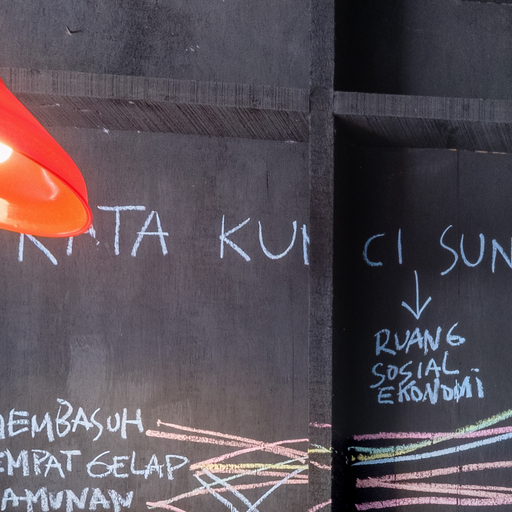 KATA KUNCI SUN
RUANG
SOSIAL
EKONOMI
MEMBASUH
EMPAT GELAP
AMUNAN